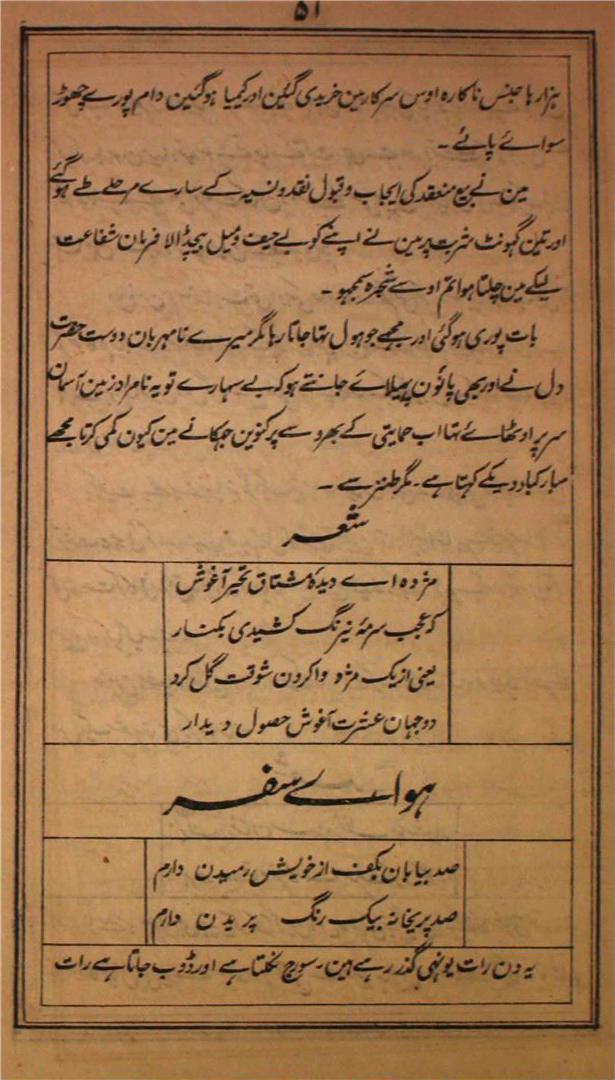 ۵۱
ہزارہا جنس ناکارہ اوس سرکار مین خریدی گئین اور کیمیا ہوگئین دام پورے چھوڑ
سوائے پائے ۔
مین نے بیع منعقد کی ایجاب و قبول نقد و نسیہ کے سارے مرحلے طے ہو گئے
اور تین گہونٹ شربت پر مین نے اپنے کو بے حیف و میل بیچڈالا فرمان شفاعت
لیکے مین چلتا ہوا تم اوسے شجرہ سمجہو ۔
بات پوری ہوگئی اور مجھے جو ہول تہا جاتا رہا مگر میرے نامہربان دوست حضرت
دل نے اور بھی پائون پھیلائے جانتے ہو کہ بے سہارے تو یہ نامراد زمین آسمان
سر پر اوٹھائے تہا اب حمایتی کے بھروسے پر کنوین جہکانے مین کیون کمی کرتا مجھے
مبارکباد دیکے کہتا ہے ۔ مگر طنز سے ۔
شعر
مژدہ اے دیدۂ مشتاق تحیر آغوش
کہ عجب سرمۂ نیرنگ کشیدی بکنار
یعنی از یک مژہ واکردن شوقت گل کرد
دو جہان عشرت آغوش حصول دیدار
ہواے سفر
صد بیابان بکف از خویش رمیدن دارم
صد پریخانہ بیک رنگ پریدن دارم
یہ دن رات یونہی گذر رہے ہین ۔ سورج نکلتا ہے اور ڈوب جاتا ہے رات